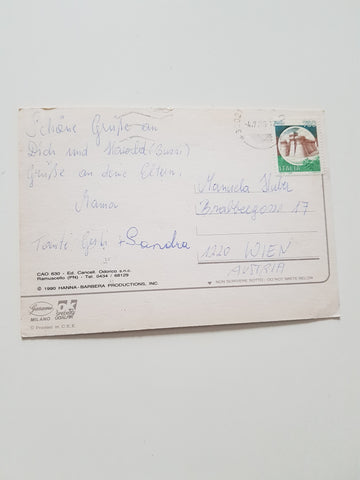 Schöne Grüße an
Dich und Harald (Bussi)
Grüße an deine Eltern.
Mama
Tante Gerti + Sandra
ITALIA
Manuela Huber
Brabbeegasse 17
1220 WIEN
AUSTRIA
CAO 630 - Ed. Cancell. Odorico s.n.c.
Ramuscello (PN) - Tel. 0434 / 68129
© 1990 HANNA-BARBERA PRODUCTIONS, INC
NON SCRIVERE SOTTO - DO NOT WRITE BELOW
MILANO
© Printed in C.E.E.